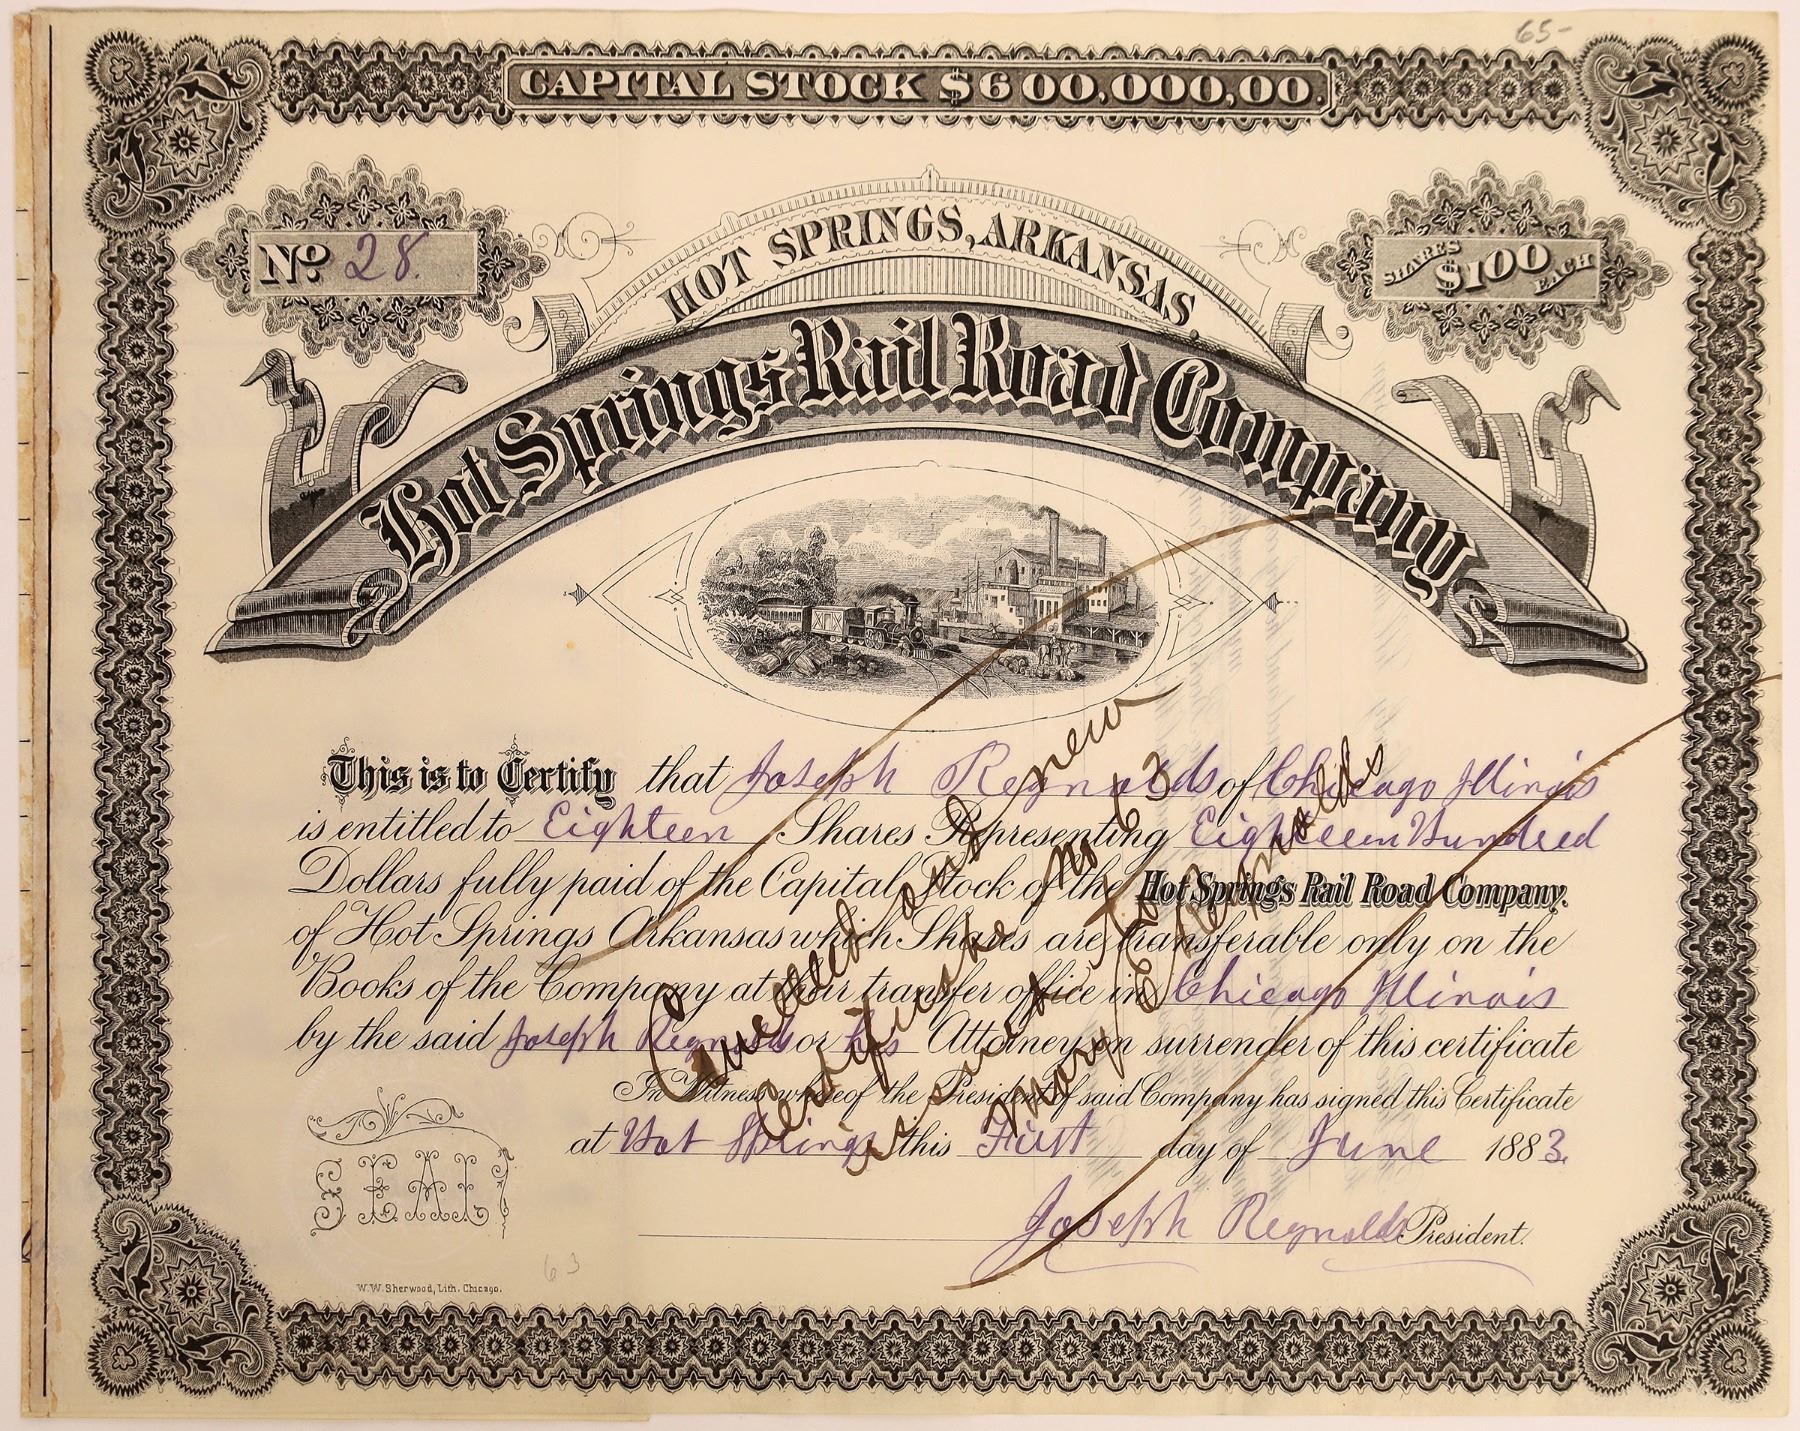 65-
CAPITAL STOCK $600,000,00.
No 28.
SHARES $100 EACH
HOT SPRINGS, ARKANSAS.
Hot Springs Rail Road Company
This is to Certify that Joseph Reynolds of Chicago Illinois
is entitled to Eighteen Shares Representing Eighteen Hundred
Dollars fully paid of the Capital Stock of the Hot Springs Rail Road Company.
of Hot Springs Arkansas which Shares are transferable only on the
Books of the Company at their transfer office in Chicago Illinois
by the said Joseph Reynolds or his Attorney on surrender of this certificate
In Witness whereof the President of said Company has signed this Certificate
at Hot Springs this First day of June 1883.
SEAL
Joseph Reynolds President.
63
W.W. Sherwood, Lith. Chicago.
Cancelled and new
Certificate No 63
issued to
Mary E Reynolds